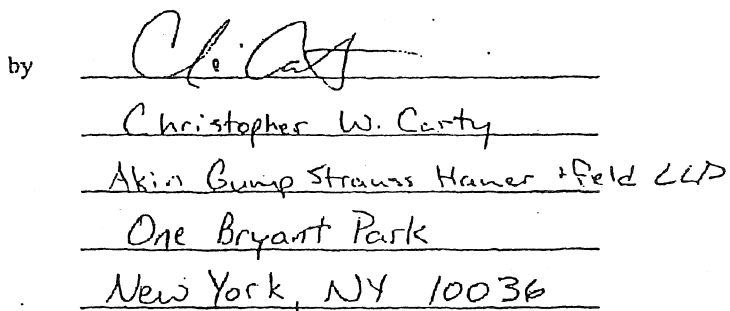 by
Christopher W. Carty
Akin Gump Strauss Hauer + Feld LLP
One Bryant Park
New York, NY 10036